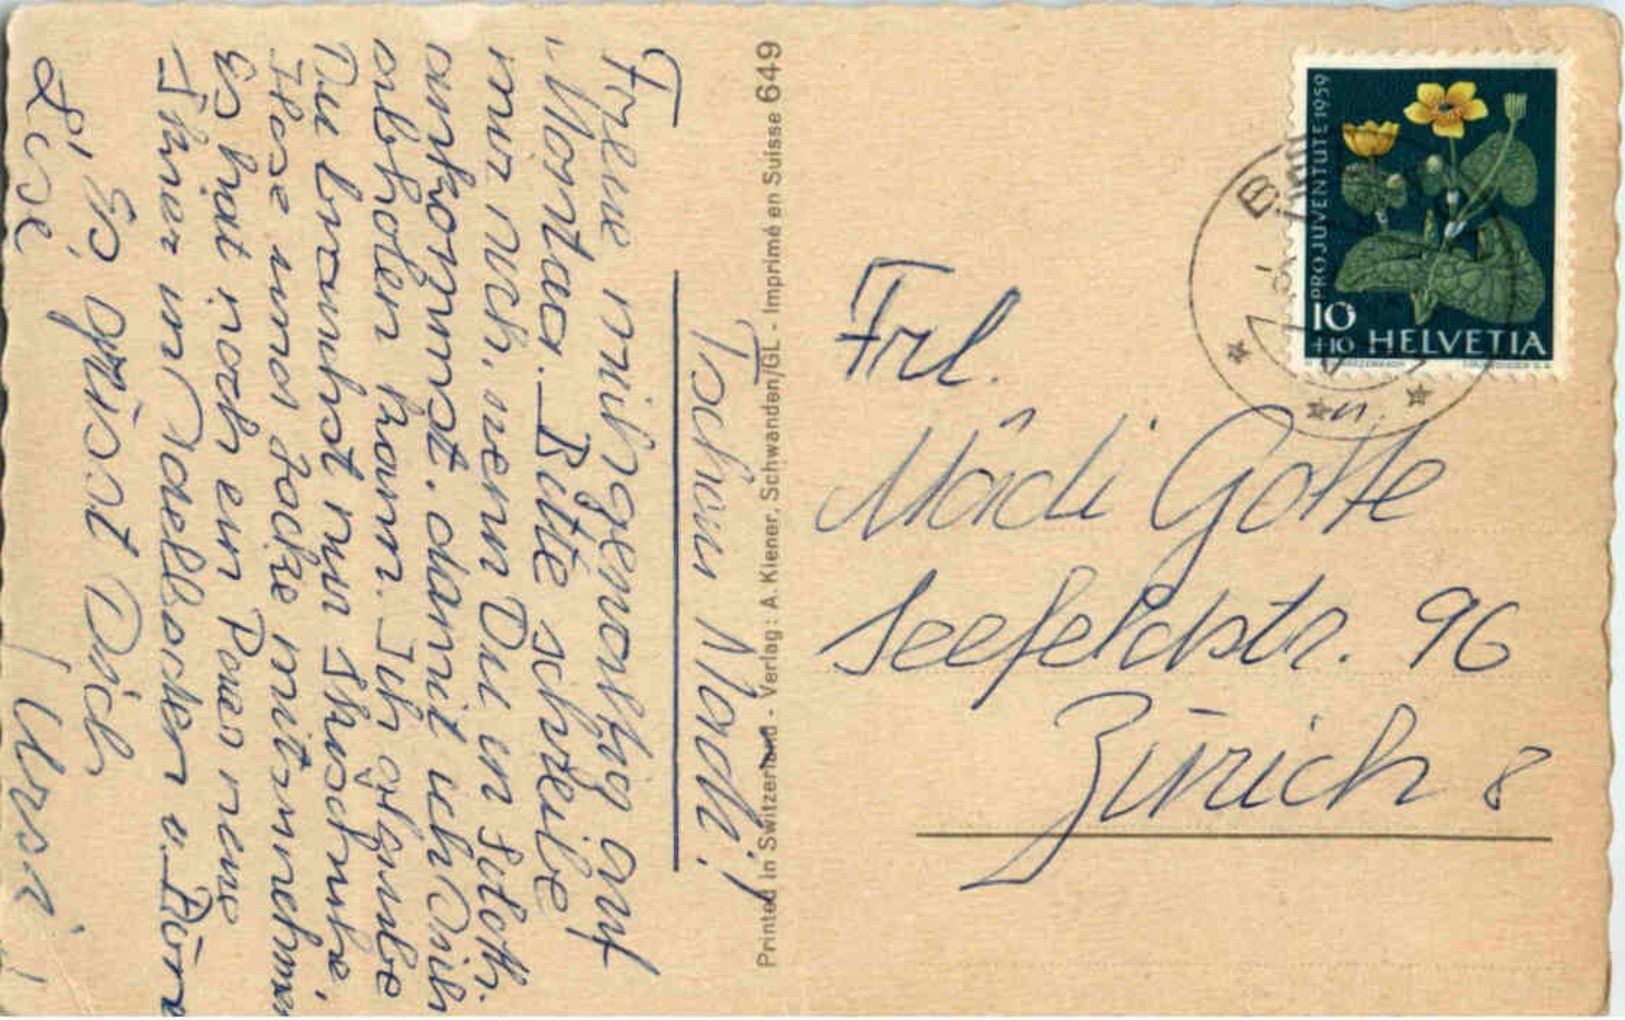 Tschau Mädi!
Freue mich gewaltig auf
Montag. Bitte schreibe
mir noch, wenn Du in
ankommst, damit ich Dich
abholen kann. Ich glaube
Du brauchst nur Skischuhe,
Hose und Jacke mitzunehmen
Es hat noch ein Paar neue
Skier im
So grüsst Dich
Ursi!
Printed in Switzerland - Verlag: A. Kiener, Schwanden/GL - Imprimé en Suisse 649
PRO JUVENTUTE 1959
10
+10 HELVETIA
Frl.
Mädi
Seefeldstr. 96
Zürich 8